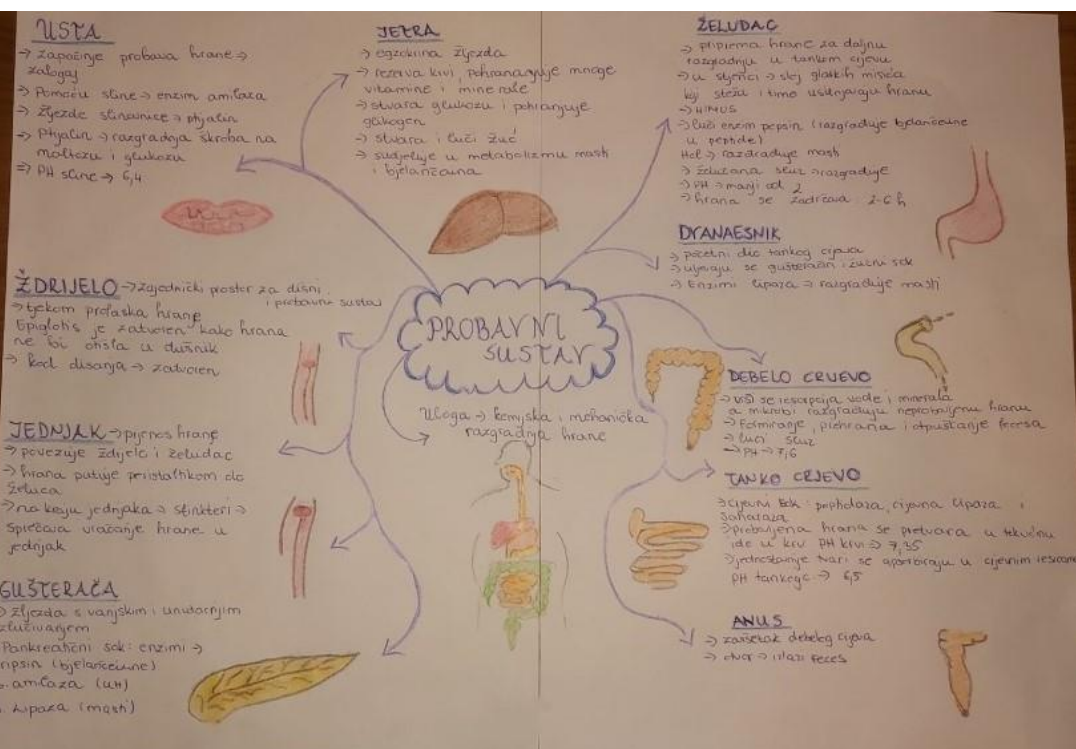 USTA
→ započinje probava hrane →
zalogaj
→ Pomoću sline → enzim amilaza
→ Žlijezde slinovnice → ptyalin
→ Ptyalin → razgradnja škroba na
maltozu i glukozu
→ PH sline → 6,4
JETRA
→ egzokrina žlijezda
→ rezerva krvi, pohranjuje mnoge
vitamine i minerale
→ stvara glukozu i pohranjuje
glikogen
→ stvara i luči žuč
→ sudjeluje u metabolizmu masti
i bjelančevina
ŽELUDAC
→ priprema hrane za daljnu
razgradnju u tankom crijevu
→ u stjenci → sloj glatkih mišića
koji stežu i time usitnjavaju hranu
→ HIMUS
→ luči enzim pepsin (razgrađuje bjelančevine
u peptide)
Hcl → razdrađuje masti
→ želučana sluz → razgrađuje
→ PH → manji od 2
→ hrana se zadržava 2-6 h
DVANAESNIK
→ početni dio tankog crijeva
→ ulijevaju se gušteračin i žučni sok
→ Enzimi lipaza → razgrađuje masti
ŽDRIJELO → zajednički prostor za dišni
i probavni sustav
→ tjekom prolaska hrane
Epiglotis je zatvoren kako hrana
ne bi otišla u dušnik
→ kod disanja → zatvoren
PROBAVNI
SUSTAV
Uloga → kemijska i mehanička
razgradnja hrane
DEBELO CRIJEVO
→ vrši se resorpcija vode i minerala
a mikrobi razgrađuju neprobavljenu hranu
→ Formiranje, prehrana i otpuštanje fecesa
→ luči sluz
→ PH → 7,6
JEDNJAK → prijenos hrane
→ povezuje ždrijelo i želudac
→ hrana putuje peristaltikom do
želuca
→ na kraju jednjaka → sfinkteri →
sprječava vraćanje hrane u
jednjak
TANKO CRJEVO
→ crijevni sok: crijevna lipaza i
saharaza
→ probavljena hrana se pretvara u tekućinu
ide u krv PH krvi → 7,35
→ jednostavnije tvari se apsorbiraju u crijevnim
PH tankoga → 6,5
GUŠTERAČA
→ žlijezda s vanjskim i unutarnjim
izlučivanjem
Pankreatični sok: enzimi →
ripsin (bjelančevine)
amilaza (UH)
Lipaza (masti)
ANUS
→ završetak debelog crijeva
→ otvor → izlazi feces